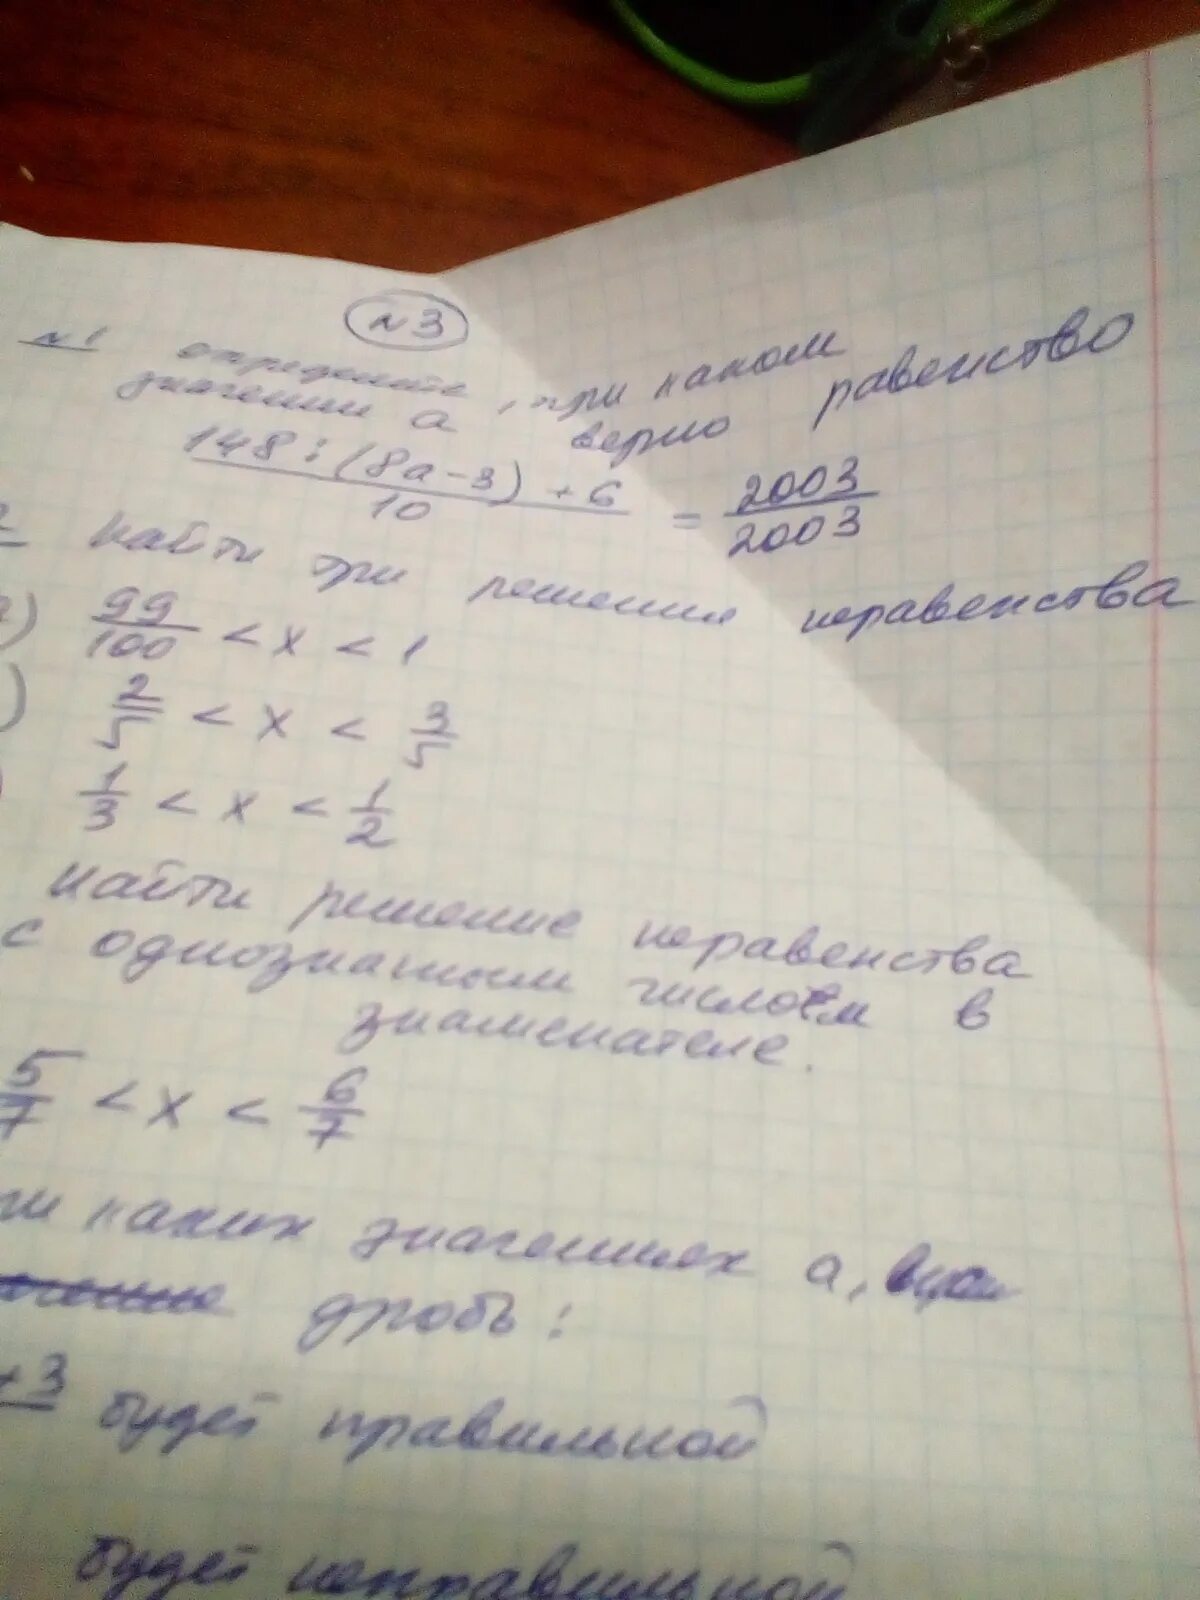 №3
№1 определите, при каком
значении а верно равенство
148 : (8а - 3) + 6 / 10 = 2003 / 2003
найти три решения неравенства
) 99/100 < x < 1
) 2/5 < x < 3/5
1/3 < x < 1/2
найти решение неравенства
с однозначным числоем в
знаменателе.
5/7 < x < 6/7
ри каких значениях а,
дробь:
+3 будет правильной
будет неправильной